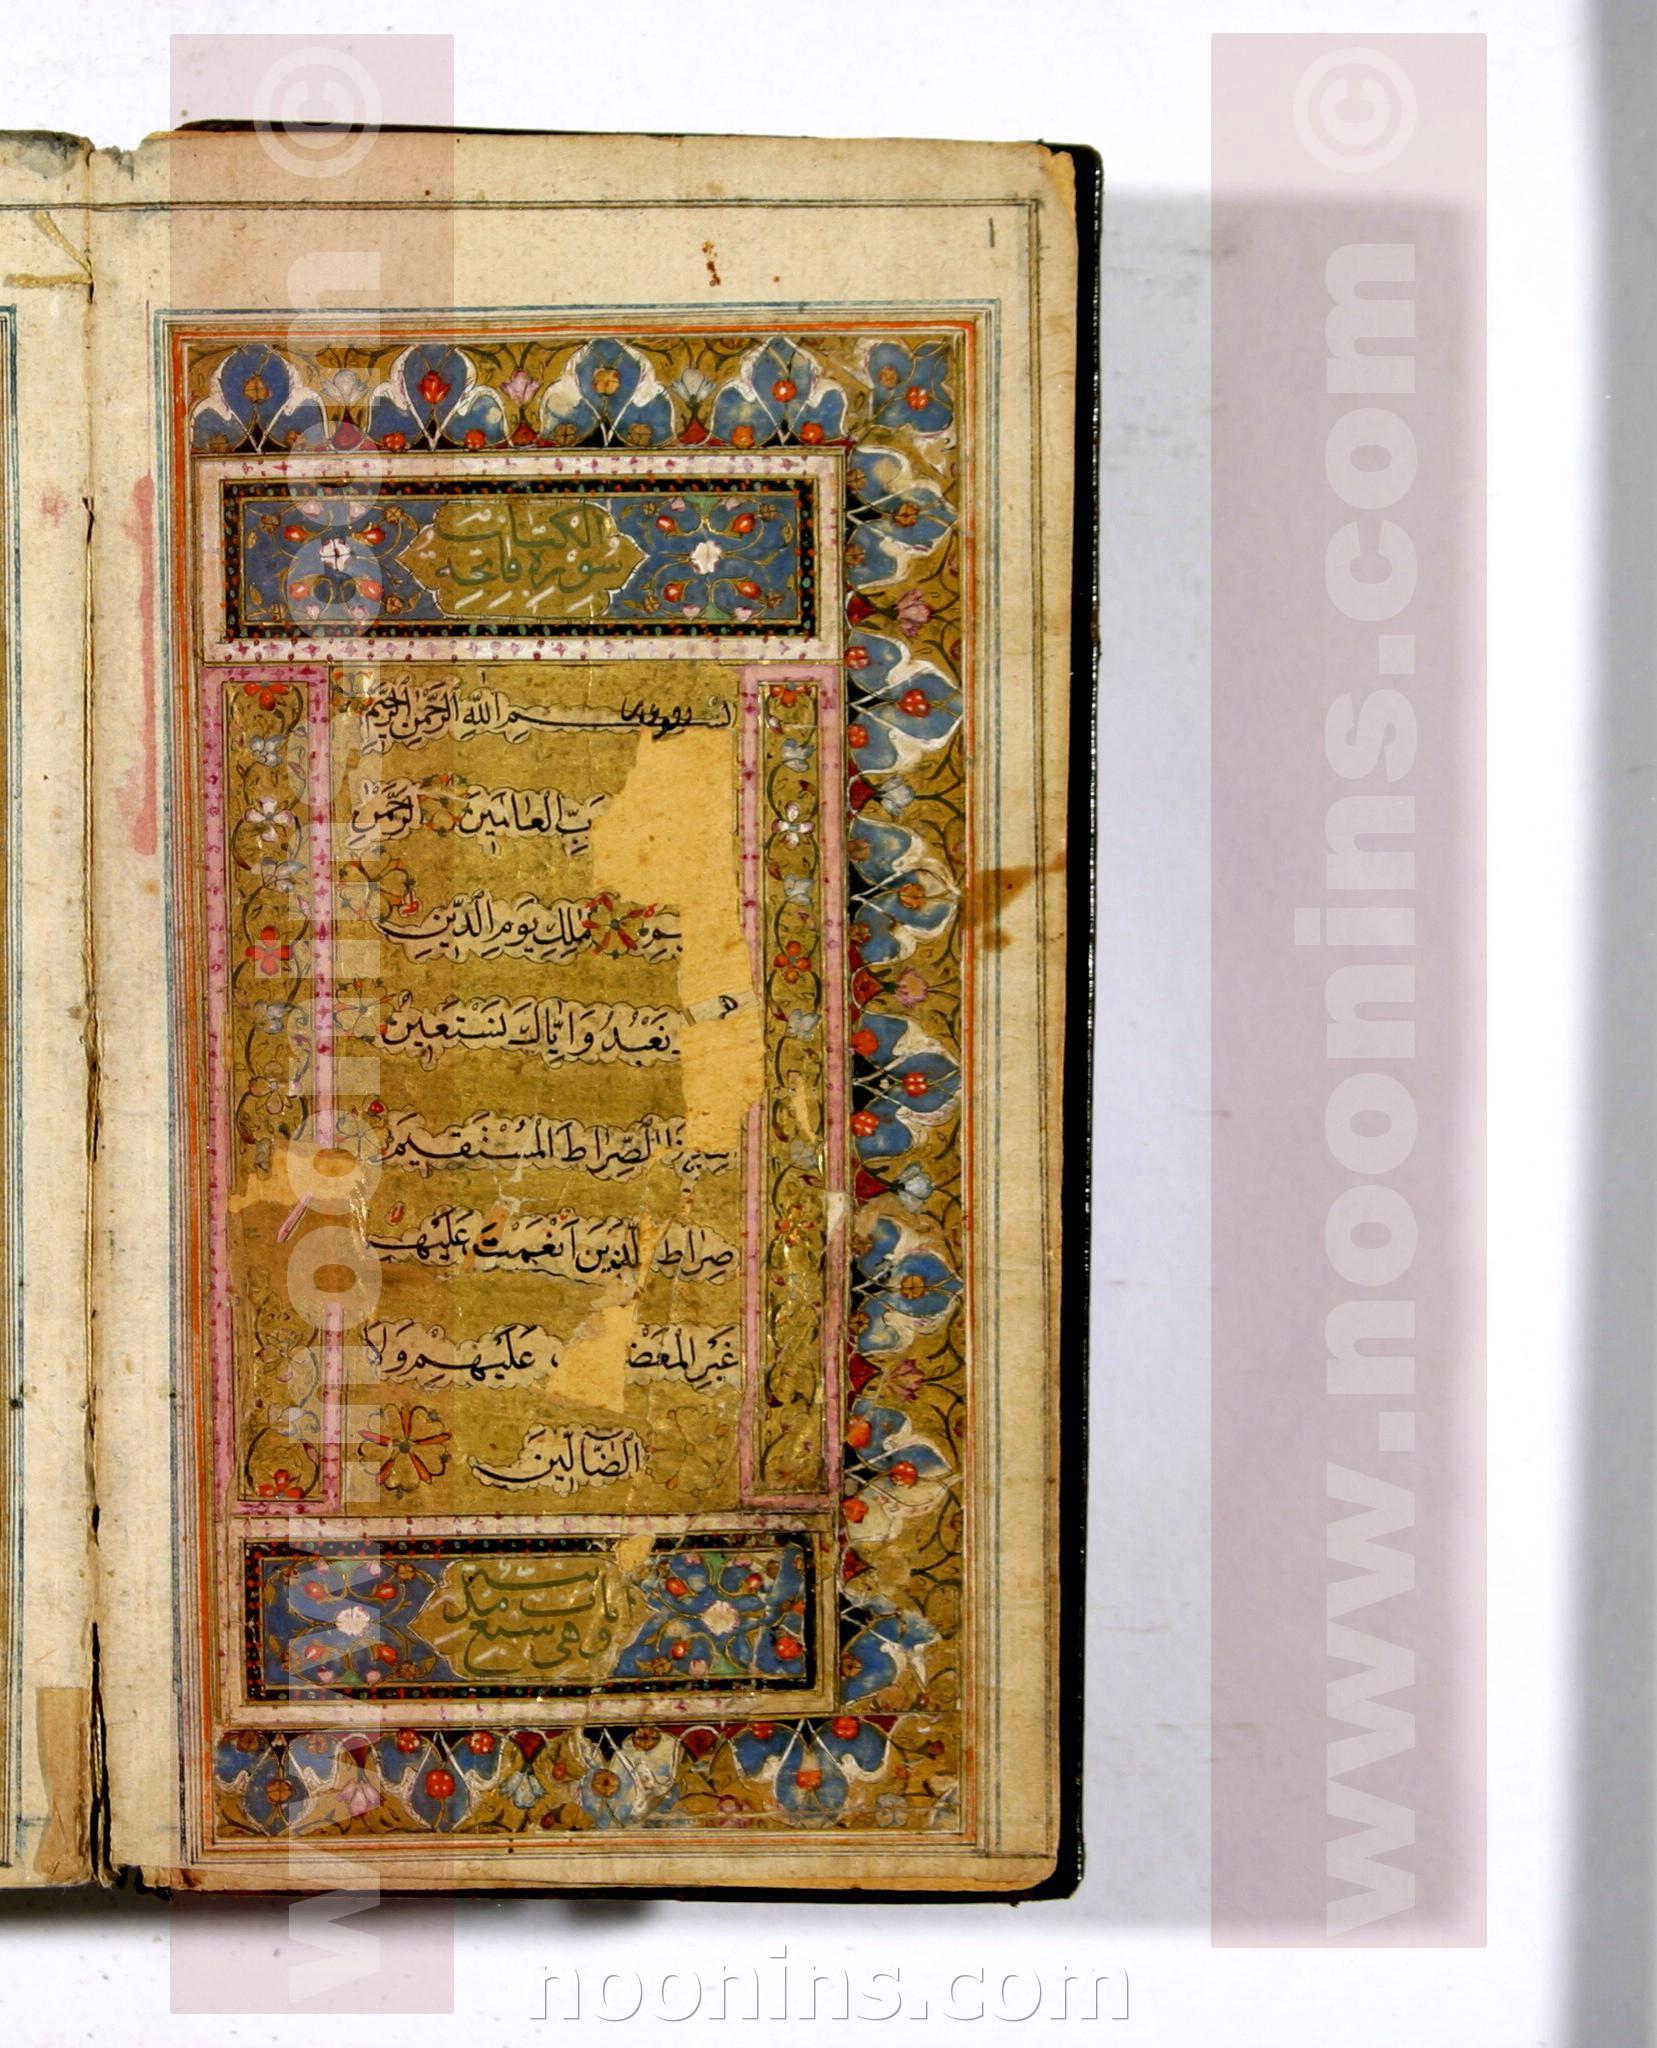 ۱
سورة فاتحة
الكتاب
بِسْمِ اللهِ الرَّحْمٰنِ الرَّحِيمِ
بِّ الْعَالَمِينَ الرَّحْمٰنِ
مٰلِكِ يَوْمِ الدِّينِ
نَعْبُدُ وَاِيَّاكَ نَسْتَعِينُ
الصِّرَاطَ الْمُسْتَقِيمَ
صِرَاطَ الَّذِينَ اَنْعَمْتَ عَلَيْهِمْ
غَيْرِ الْمَغْضُ عَلَيْهِمْ وَلَا
الضَّالِّينَ
وهي سبع
www.noonins.com ©
www.noonins.com ©
noonins.com